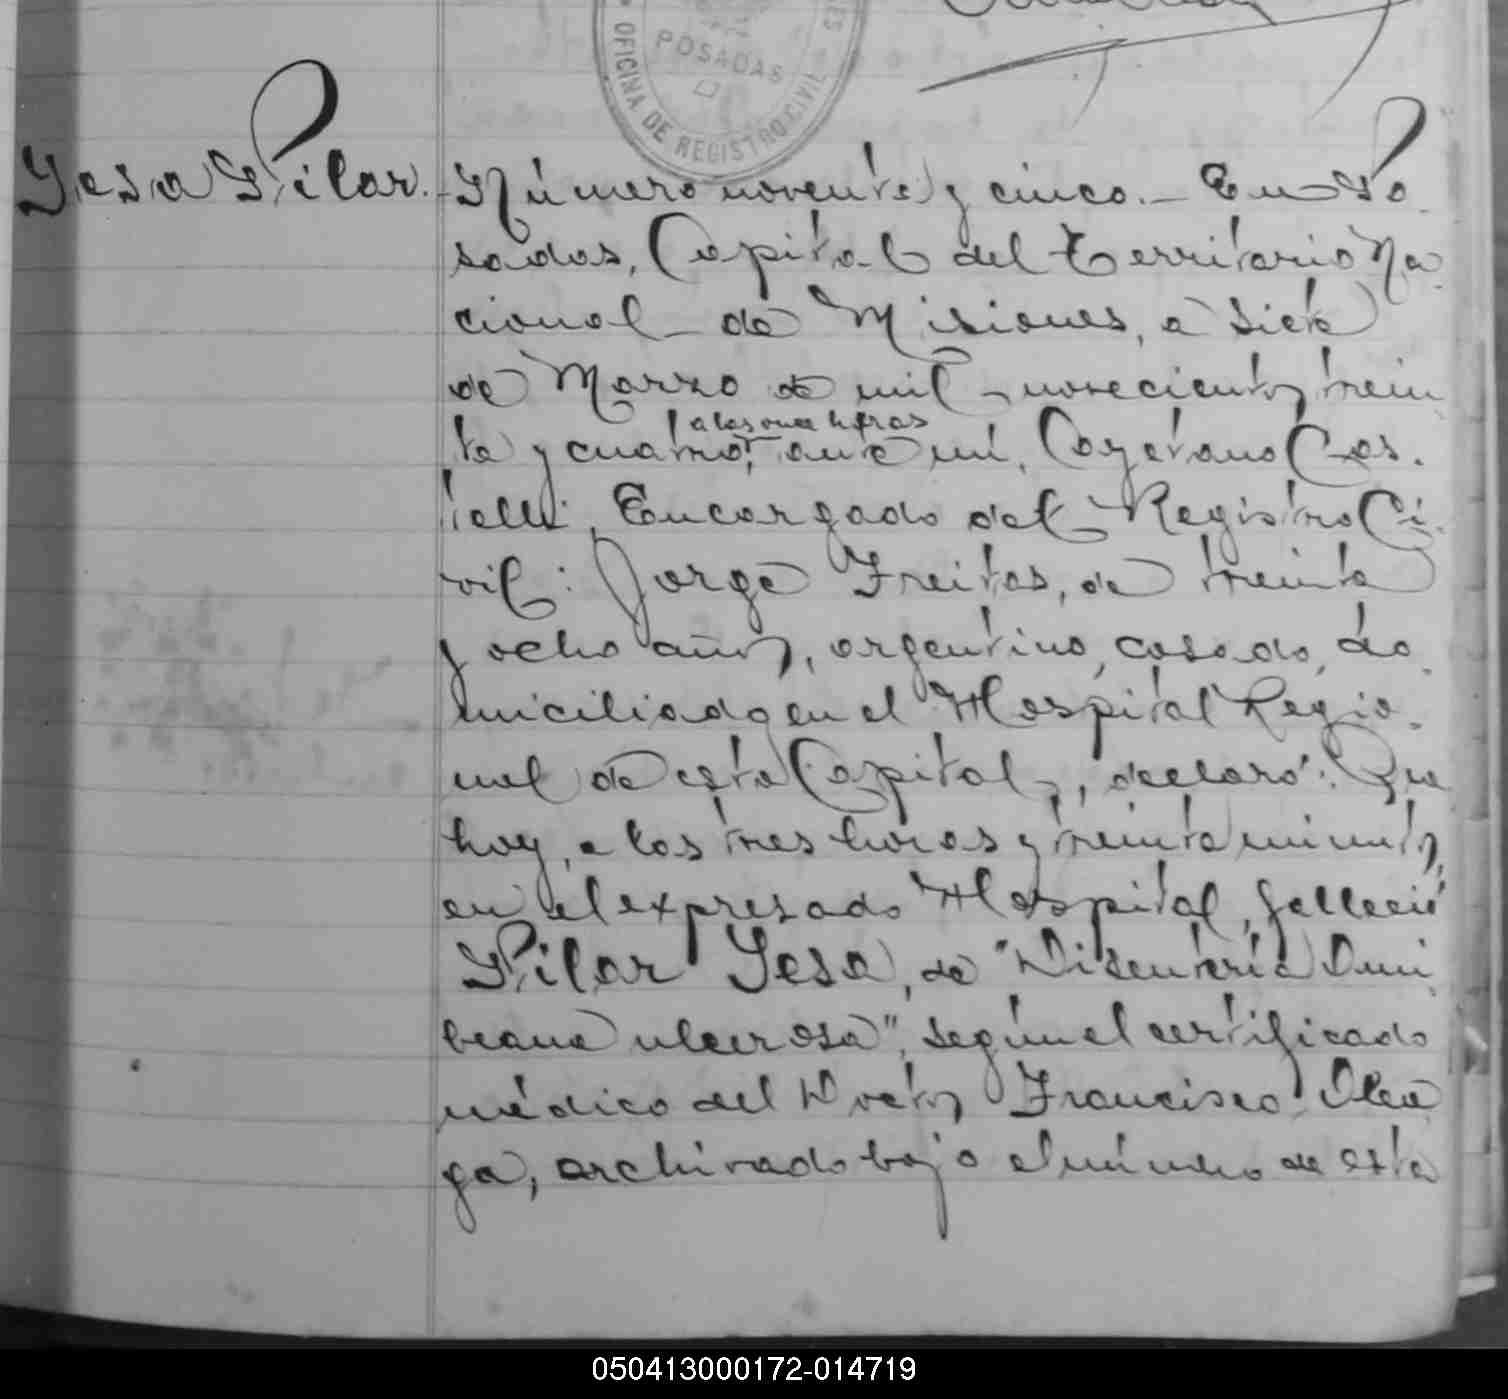 POSADAS
OFICINA DE REGISTRO CIVIL
Yesa Pilar.
Número noventa y cinco.- En Po
sadas, Capital del Territorio Na
cional de Misiones, a siete
de Marzo de mil novecientos trein
a las once horas
ta y cuatro, ante mí, Cayetano Cas
telli, Encargado del Registro Ci
vil: Jorge Freitas, de treinta
y ocho años, argentino, casado, do
miciliado en el Hospital Regio
nal de esta Capital, declaró: Que
hoy, a las tres horas y treinta minutos,
en el expresado Hospital, falleció
Pilar Yesa, de "Disentería Ami
beana ulcerosa", según el certificado
médico del Doctor Francisco
ga, archivado bajo el número de esta
050413000172-014719